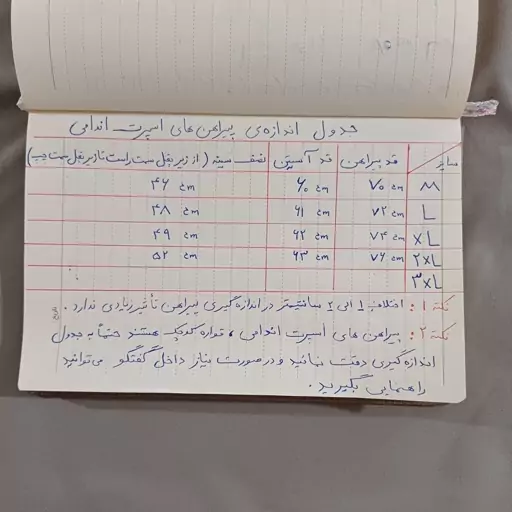 جدول اندازه‌ی پیراهن های اسپرت اندامی
سایز قد پیراهن قد آستین نصف سینه (از زیر بغل سمت راست تا زیر بغل سمت چپ)
M ۷۰ cm ۶۰ cm ۴۶ cm
L ۷۲ cm ۶۱ cm ۴۸ cm
XL ۷۴ cm ۶۲ cm ۴۹ cm
۲XL ۷۶ cm ۶۳ cm ۵۲ cm
۳XL
نکته ۱: اختلاف ۱ الی ۲ سانتیمتر در اندازه گیری پیراهن تأثیر زیادی ندارد.
نکته ۲: پیراهن های اسپرت اندامی، قواره کوچک هستند حتماً به جدول
اندازه گیری دقت نمائید و در صورت نیاز داخل گفتگو می‌توانید
راهنمایی بگیرید.